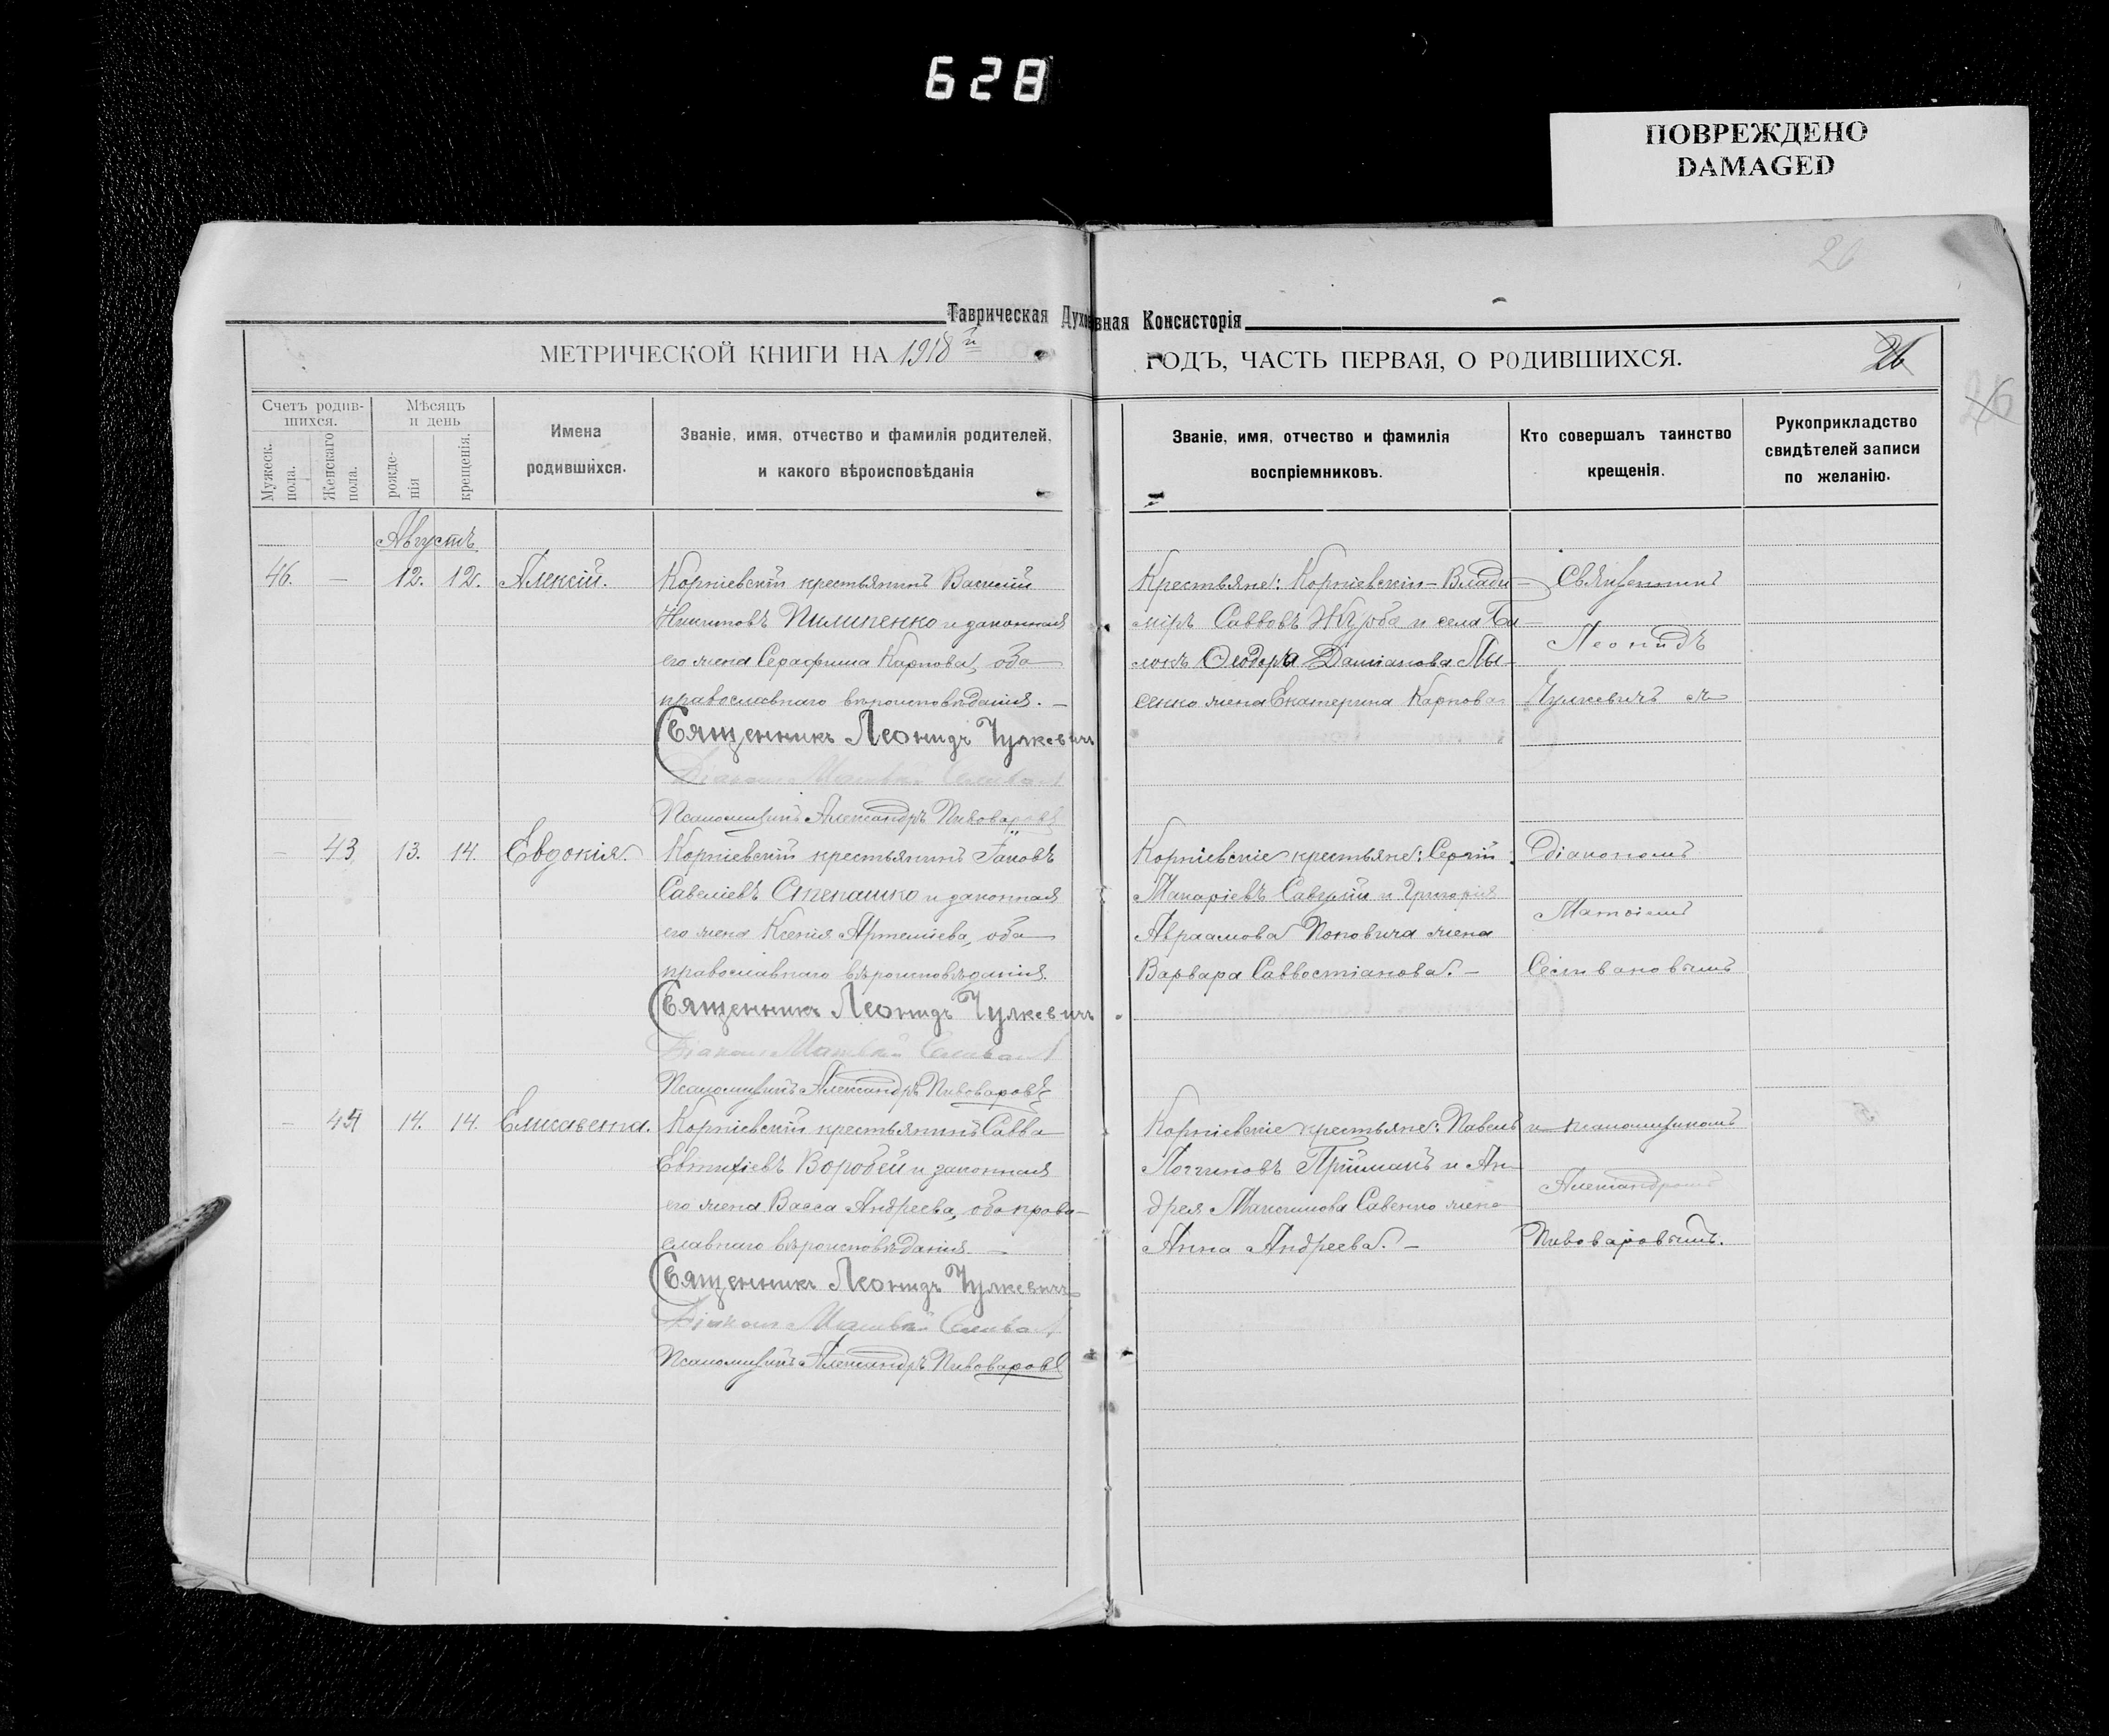 628
ПОВРЕЖДЕНО
DAMAGED
26
Таврическая Духовная Консисторія
МЕТРИЧЕСКОЙ КНИГИ НА 1918й ГОДЪ, ЧАСТЬ ПЕРВАЯ, О РОДИВШИХСЯ.
26
26
Счетъ родив-
шихся.
Мужеск. пола.
Женскаго пола.
Мѣсяцъ
и день
рожде-
нія
крещенія.
Имена
родившихся.
Званіе, имя, отчество и фамилія родителей,
и какого вѣроисповѣданія
Званіе, имя, отчество и фамилія
воспріемниковъ.
Кто совершалъ таинство
крещенія.
Рукоприкладство
свидѣтелей записи
по желанію.
Августъ.
46. — 12. 12. Алексій.
Корніевскій крестьянинъ Василій
Пилипенко и законная
его жена Серафима Карпова, оба
православнаго вѣроисповѣданія. —
Священникъ Леонидъ Чулкевичъ
Діаконъ Матвѣй
Псаломщикъ Александръ Пивоваровъ
Крестьяне: Корніевскій — Влади-
міръ Саввовъ Жураба и села
Ѳеодора Даміанова Лы-
сенко жена Екатерина Карпова
Священникъ
Леонидъ
Чулкевичъ
— 43 13. 14. Евдокія.
Корніевскій крестьянинъ Іаковъ
Савеліевъ Степашко и законная
его жена Ксенія Артеміева, оба
православнаго вѣроисповѣданія.
Священникъ Леонидъ Чулкевичъ
Діаконъ Матвѣй
Псаломщикъ Александръ Пивоваровъ
Корніевскіе крестьяне: Сергій
Макаріевъ и Григорія
Авраамова Поповича жена
Варвара Саввостіанова. —
діакономъ
Селивановымъ
— 44 14. 14. Елисавета.
Корніевскій крестьянинъ Савва
Евтихіевъ Воробей и законная
его жена Васса Андреева, оба право-
славнаго вѣроисповѣданія. —
Священникъ Леонидъ Чулкевичъ
Діаконъ Матвѣй
Псаломщикъ Александръ Пивоваровъ
Корніевскіе крестьяне: Павелъ
Логгиновъ Пріймакъ и Ан-
дрея Максимова Савенко жена
Анна Андреева. —
и псаломщикомъ
Александромъ
Пивоваровымъ.